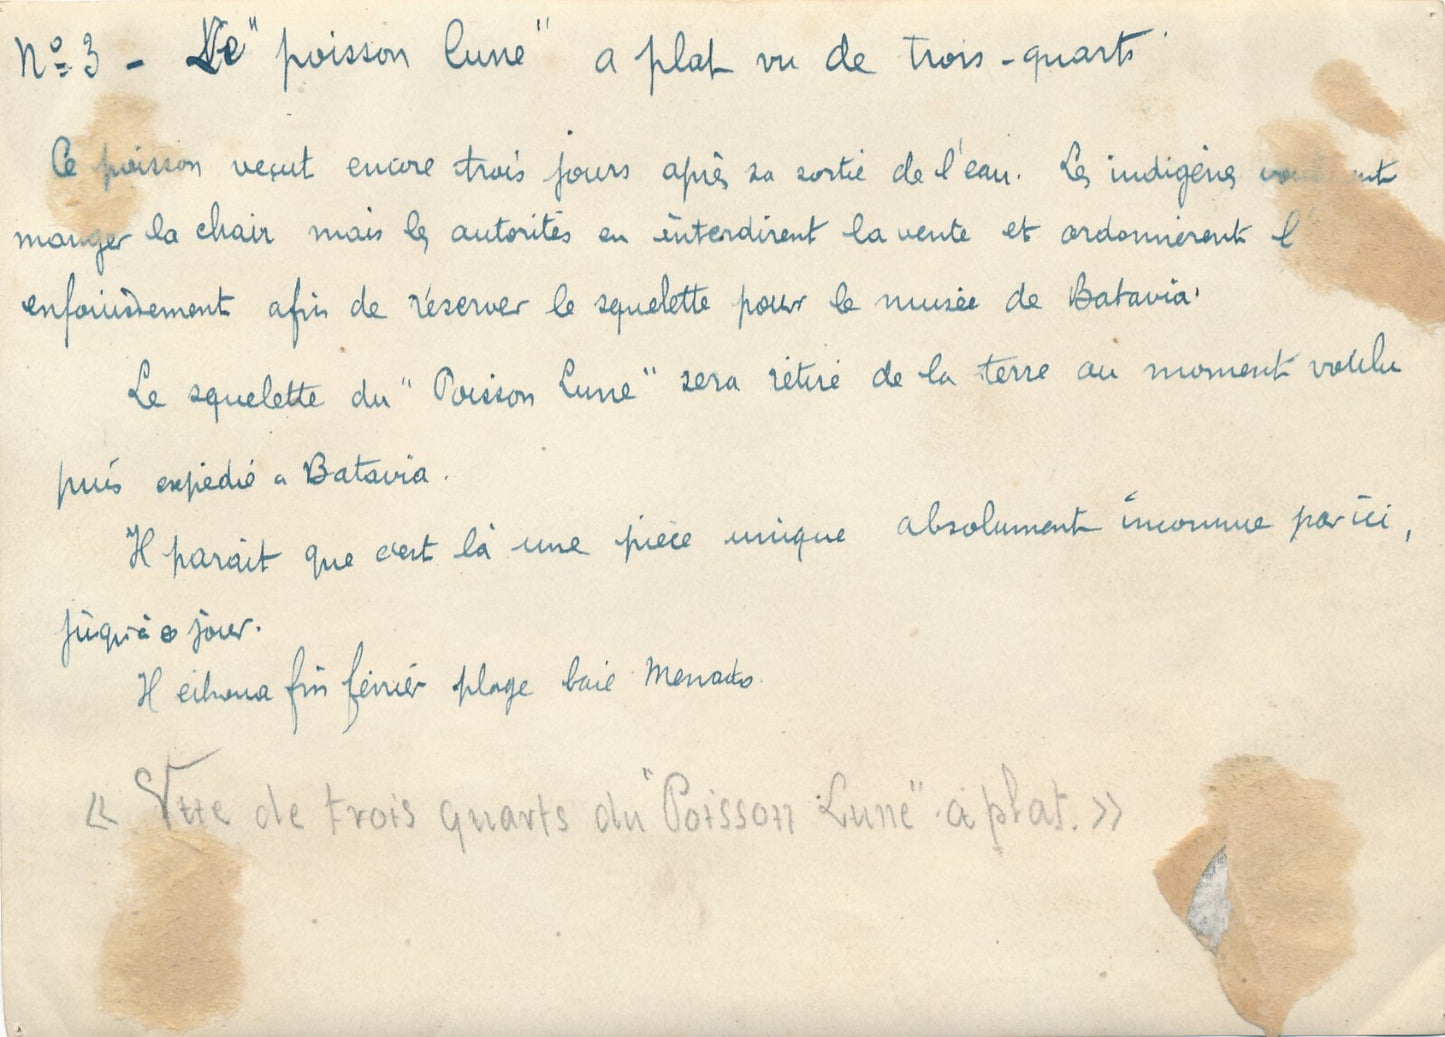 Nº 3 - Le "poisson lune" a plat vu de trois-quarts
Ce poisson veçut encore trois jours après sa sortie de l'eau. Les indigènes
manger la chair mais les autorités en interdirent la vente et ordonnèrent l'
enfouissement afin de réserver le squelette pour le musée de Batavia.
Le squelette du "Poisson Lune" sera rétiré de la terre au moment voulu
puis expédié a Batavia.
Il parait que c'est là une pièce unique absolument inconnue par ici,
jusqu'à ce jour.
Il échoua fin février plage baie Menado.
« Vue de trois quarts du "Poisson Lune" à plat. »